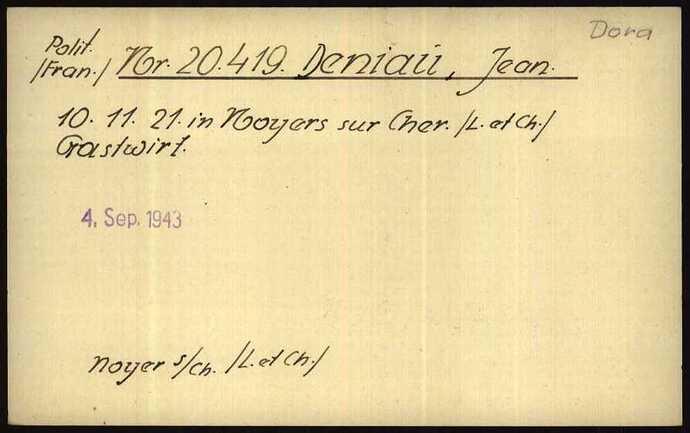 Dora
Polit.
/Fran./ Nr. 20.419. Deniau, Jean.
10. 11. 21. in Noyers sur Cher. /L. et Ch./
Gastwirt.
4. Sep. 1943
Noyer s/Ch. /L. et Ch./